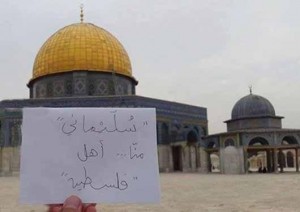 "سُلَيْمَانِيْ"
مِنّا.. أهل
"فلسطين"